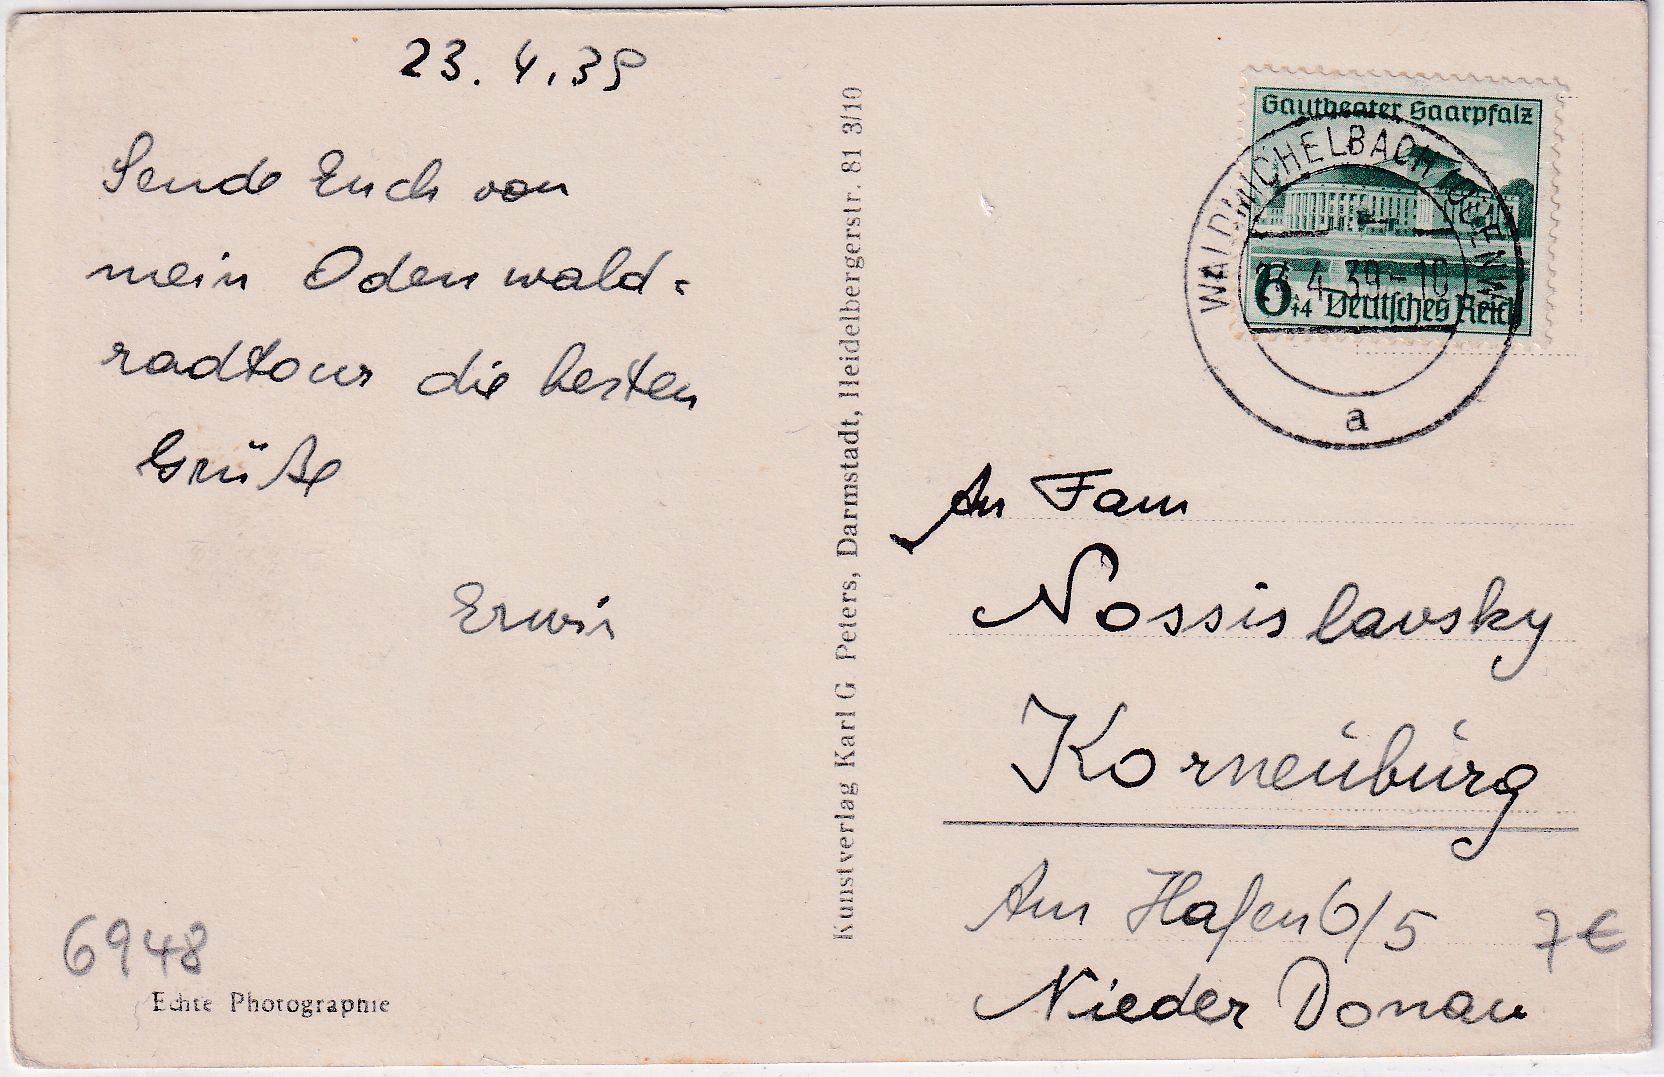 23. 4. 39
Sende Euch von
mein Odenwald=
radtour die besten
Grüße
Erwin
6948
Echte Photographie
Kunstverlag Karl G Peters, Darmstadt, Heidelbergerstr. 81 3/10
Gautheater Saarpfalz
6+4 Deutsches Reich
WALDMICHELBACH (ODENW)
4.39-10
a
An Fam
Nossislavsky
Korneuburg
Am Hafen 6/5
7€
Nieder Donau